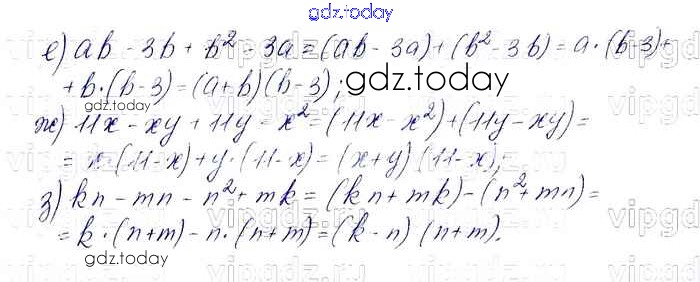 gdz.today
е) ab - 3b + b² - 3a = (ab - 3a) + (b² - 3b) = a·(b-3) +
+ b·(b-3) = (a+b)(b-3);
gdz.today
gdz.today
ж) 11x - xy + 11y - x² = (11x - x²) + (11y - xy) =
= x·(11-x) + y·(11-x) = (x+y)(11-x);
з) kn - mn - n² + mk = (kn + mk) - (n² + mn) =
= k·(n+m) - n·(n+m) = (k-n)(n+m).
gdz.today
gdz.today